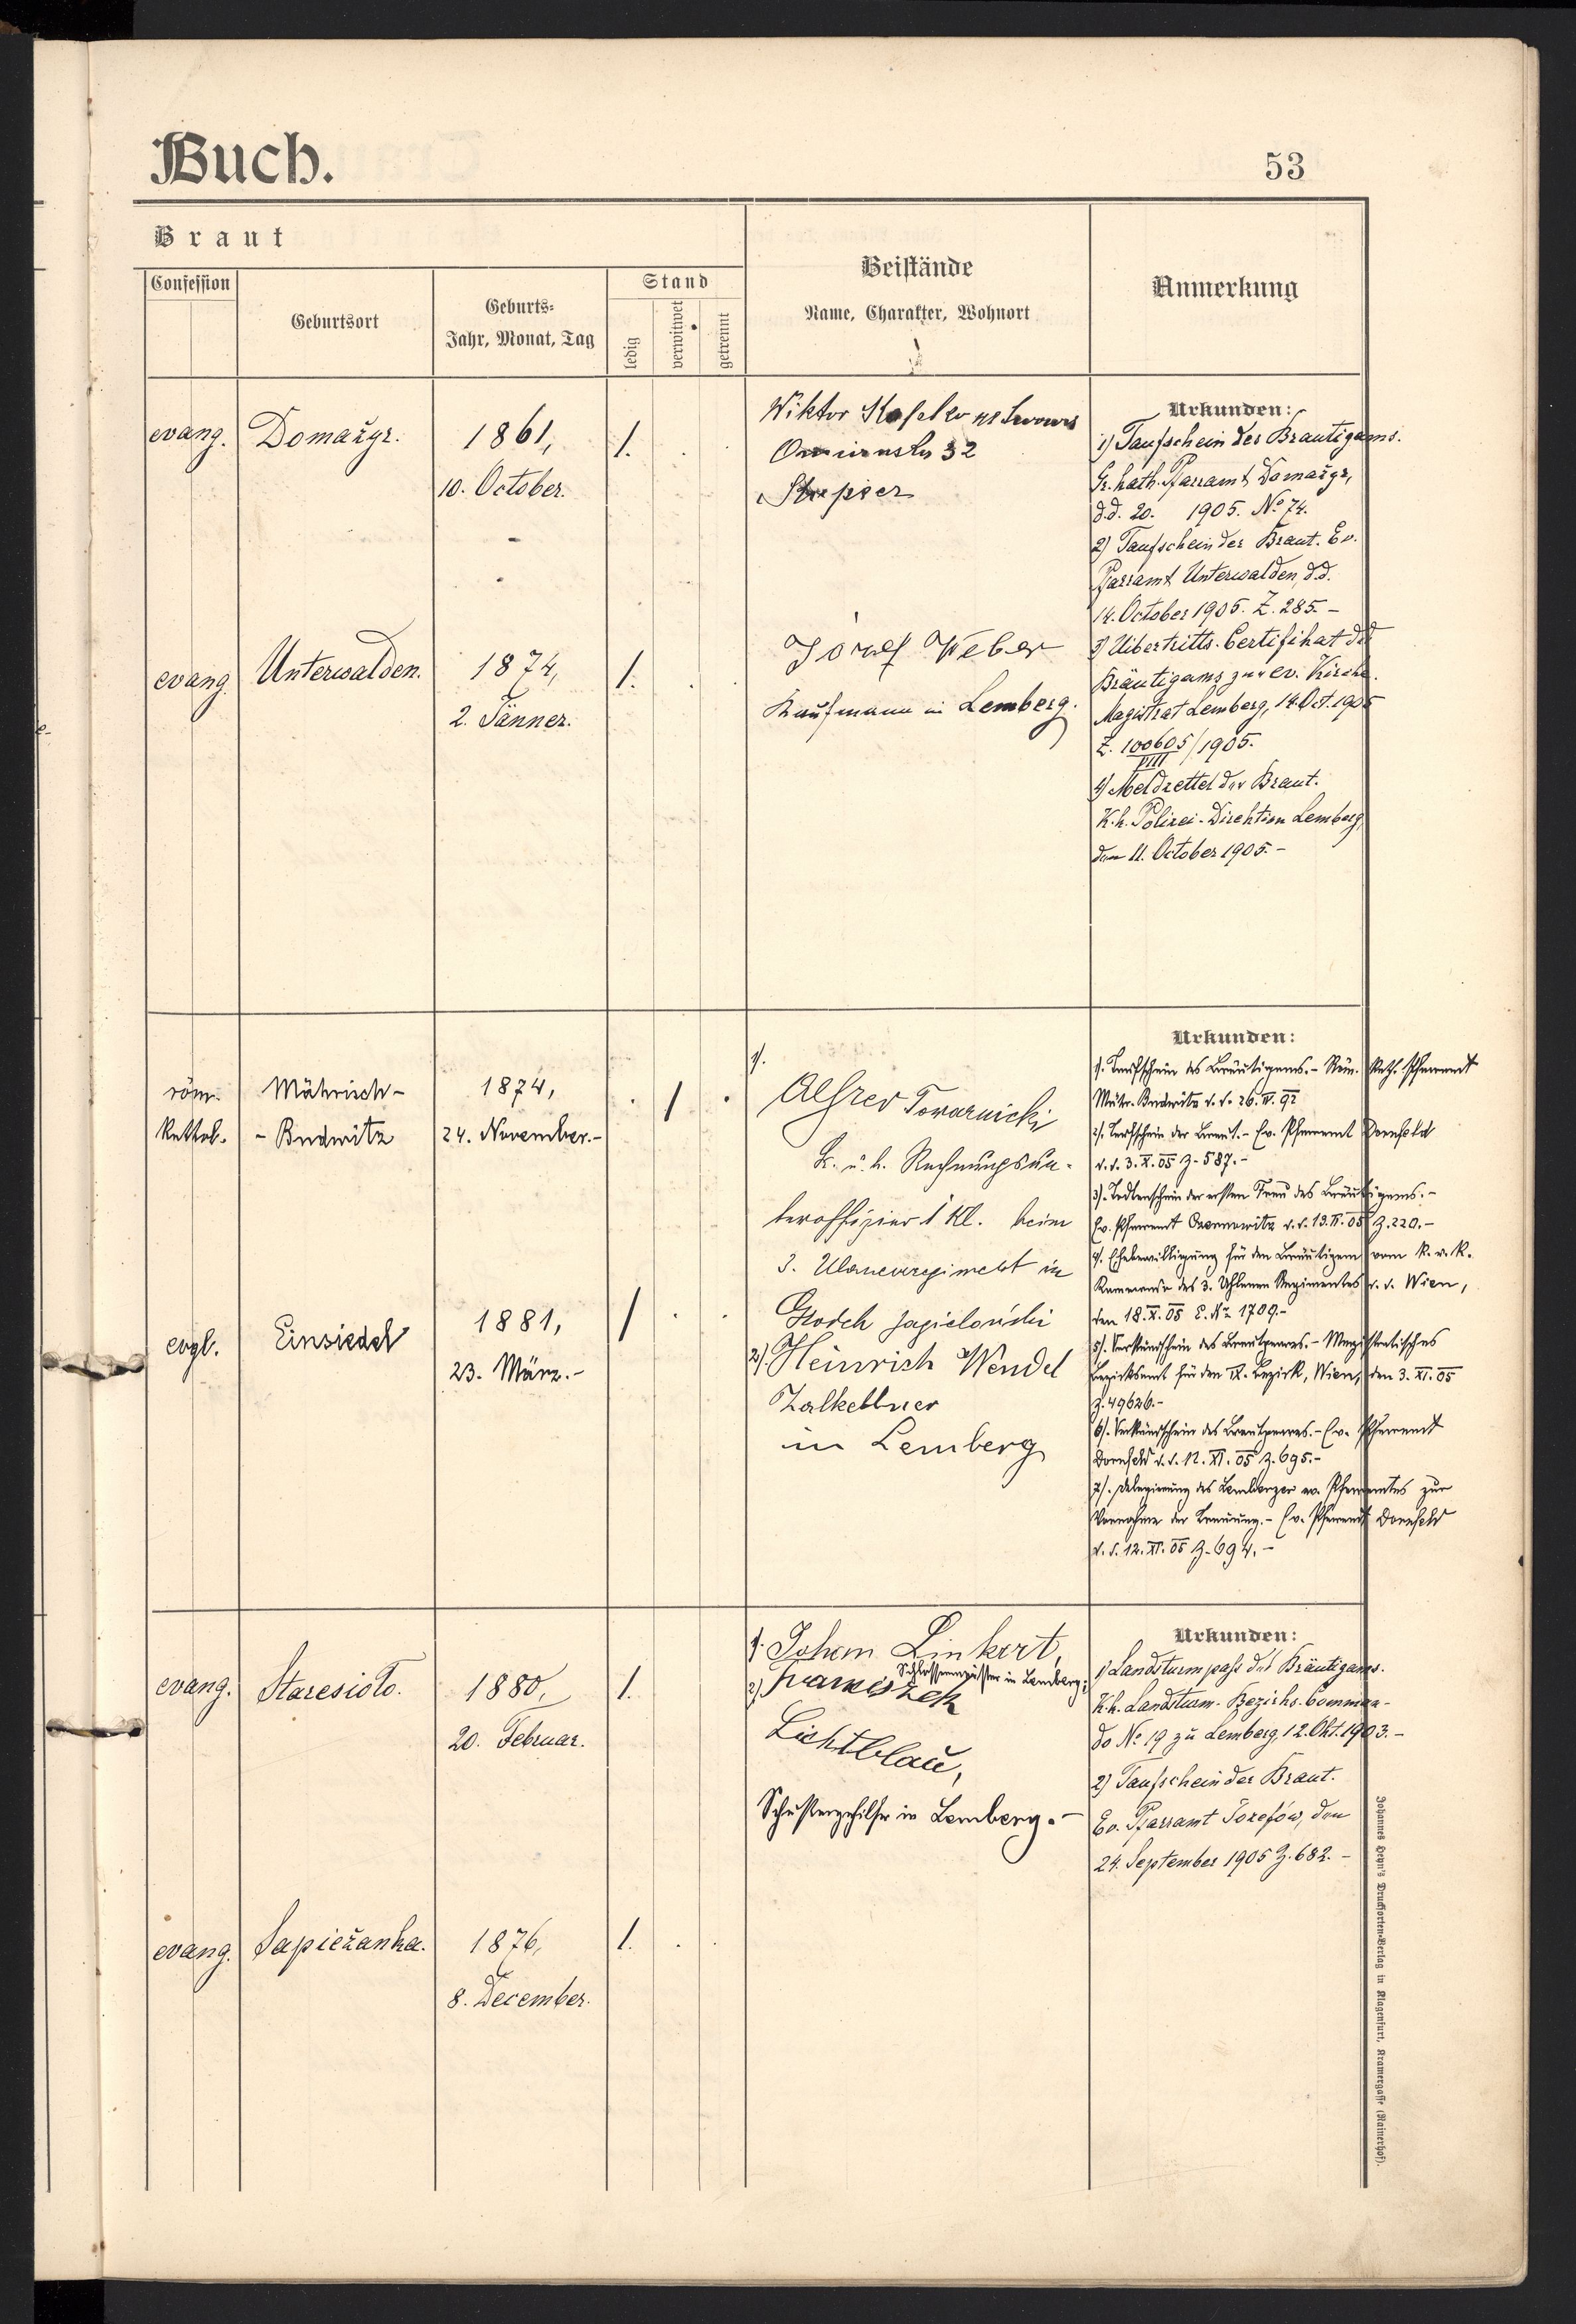 Buch.
53
Braut
Confession
Geburtsort
Geburts-
Jahr, Monat, Tag
Stand
ledig
verwitwet
getrennt
Beistände
Name, Charakter, Wohnort
Anmerkung
evang.
Domažyr.
1861,
10. October.
1.
Wiktor
32
evang.
Unterwalden.
1874,
2. Jänner.
1.
Józef Weber
Kaufmann in Lemberg.
Urkunden:
1) Taufschein des Bräutigams.
Gr. kath. Pfarramt Domažyr,
d.d. 20. 1905. No 74.
2) Taufschein der Braut. Ev.
Pfarramt Unterwalden, d.d.
14. October 1905. Z. 285. -
3) Uibertritts-Certifikat des
Bräutigams zur ev. Kirche.
Magistrat Lemberg, 14. Oct. 1905
Z. 100605/1905.
VIII
4) Meldzettel der Braut.
K.k. Polizei-Direktion Lemberg,
den 11. October 1905. -
röm.
Kathol.
Mährisch-
- Budwitz
1874,
24. November. -
1
evgl.
Einsiedel
1881,
23. März. -
1
1).
Alfred Towarnicki
K. u. k. Rechnungsun-
teroffizier 1 Kl. beim
3. Ulanenregiment in
Grodek Jagieloński
2). Heinrich Wendel
Zalkellner
in Lemberg
Urkunden:
1). Taufschein des Bräutigams. - Röm. Kath. Pfarramt
Mähr. Budwitz d. d. 26. IV. 92
2). Taufschein der Braut. - Ev. Pfarramt Dornfeld
d. d. 3. X. 05 Z. 587. -
3). Todtenschein der ersten Frau des Bräutigams. -
Ev. Pfarramt Czernowitz d. d. 19. II. 05 Z. 220. -
4). Ehebewilligung für den Bräutigam vom K. u. K.
Kommando des 3. Uhlanen Regimentes d. d. Wien,
den 18. X. 05 E. No 1709. -
5). Verkündschein des Brautpaares. - Magistratisches
Bezirksamt für den IX. Bezirk, Wien, den 3. XI. 05
Z. 49626. -
6). Verkündschein des Brautpaares. - Ev. Pfarramt
Dornfeld d. d. 12. XI. 05 Z. 695. -
7). Delegierung des Lemberger ev. Pfarramtes zur
Vornahme der Trauung. - Ev. Pfarramt Dornfeld
d. d. 12. XI. 05 Z. 694. -
evang.
Staresioło.
1880,
20. Februar.
1.
evang.
Sapieżanka.
1876,
8. December.
1.
1. Johan Linkert,
in Lemberg;
2) Franciszek
Lichtblau,
Schustergehilfe in Lemberg. -
Urkunden:
1) Landsturmpaß des Bräutigams.
K.k. Landsturm-Bezirks-Comman-
do No 19 zu Lemberg, 12. Okt. 1903. -
2) Taufschein der Braut.
Ev. Pfarramt Józefów, den
24. September 1905 Z. 682. -
Johannes Heyn's Drucksorten-Verlag in Klagenfurt, Kramergasse (Rainerhof).